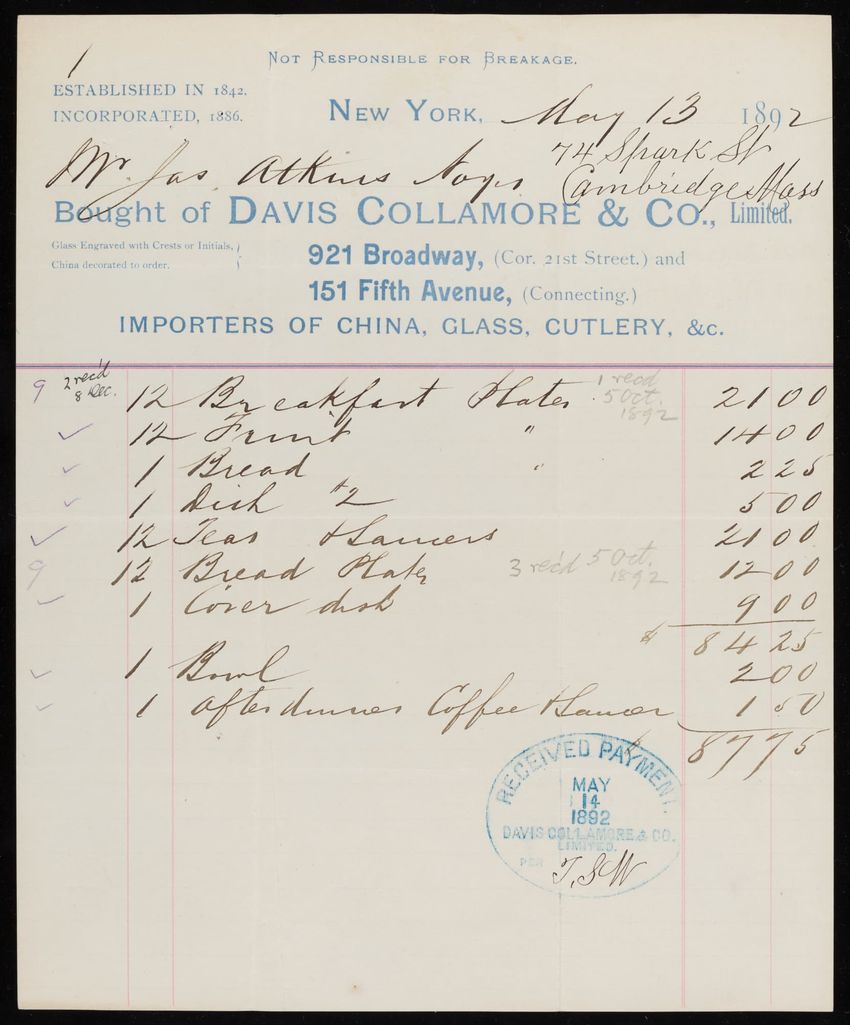 1
NOT RESPONSIBLE FOR BREAKAGE.
ESTABLISHED IN 1842.
INCORPORATED, 1886.
NEW YORK, May 13 1892
Mr. Jas. Atkins Noyes 74 Spark St
Cambridge Mass
Bought of DAVIS COLLAMORE & CO., Limited.
Glass Engraved with Crests or Initials,
China decorated to order.
921 Broadway, (Cor. 21st Street.) and
151 Fifth Avenue, (Connecting.)
IMPORTERS OF CHINA, GLASS, CUTLERY, &c.
9 2 rec'd 8 Dec. 12 Breakfast Plates 1 recd 5 Oct. 1892 21 00
12 Fruit " 14 00
1 Bread " 2 25
1 Dish #2 5 00
12 Teas & Saucers 21 00
9 12 Bread Plates 3 rec'd 5 Oct. 1892 12 00
1 Cover dish 9 00
$ 84 25
1 Bowl 2 00
1 After dinner Coffee & Saucer 1 50
$ 87 75
RECEIVED PAYMENT.
MAY
14
1892
DAVIS COLLAMORE & CO.
LIMITED.
PER T.S.W